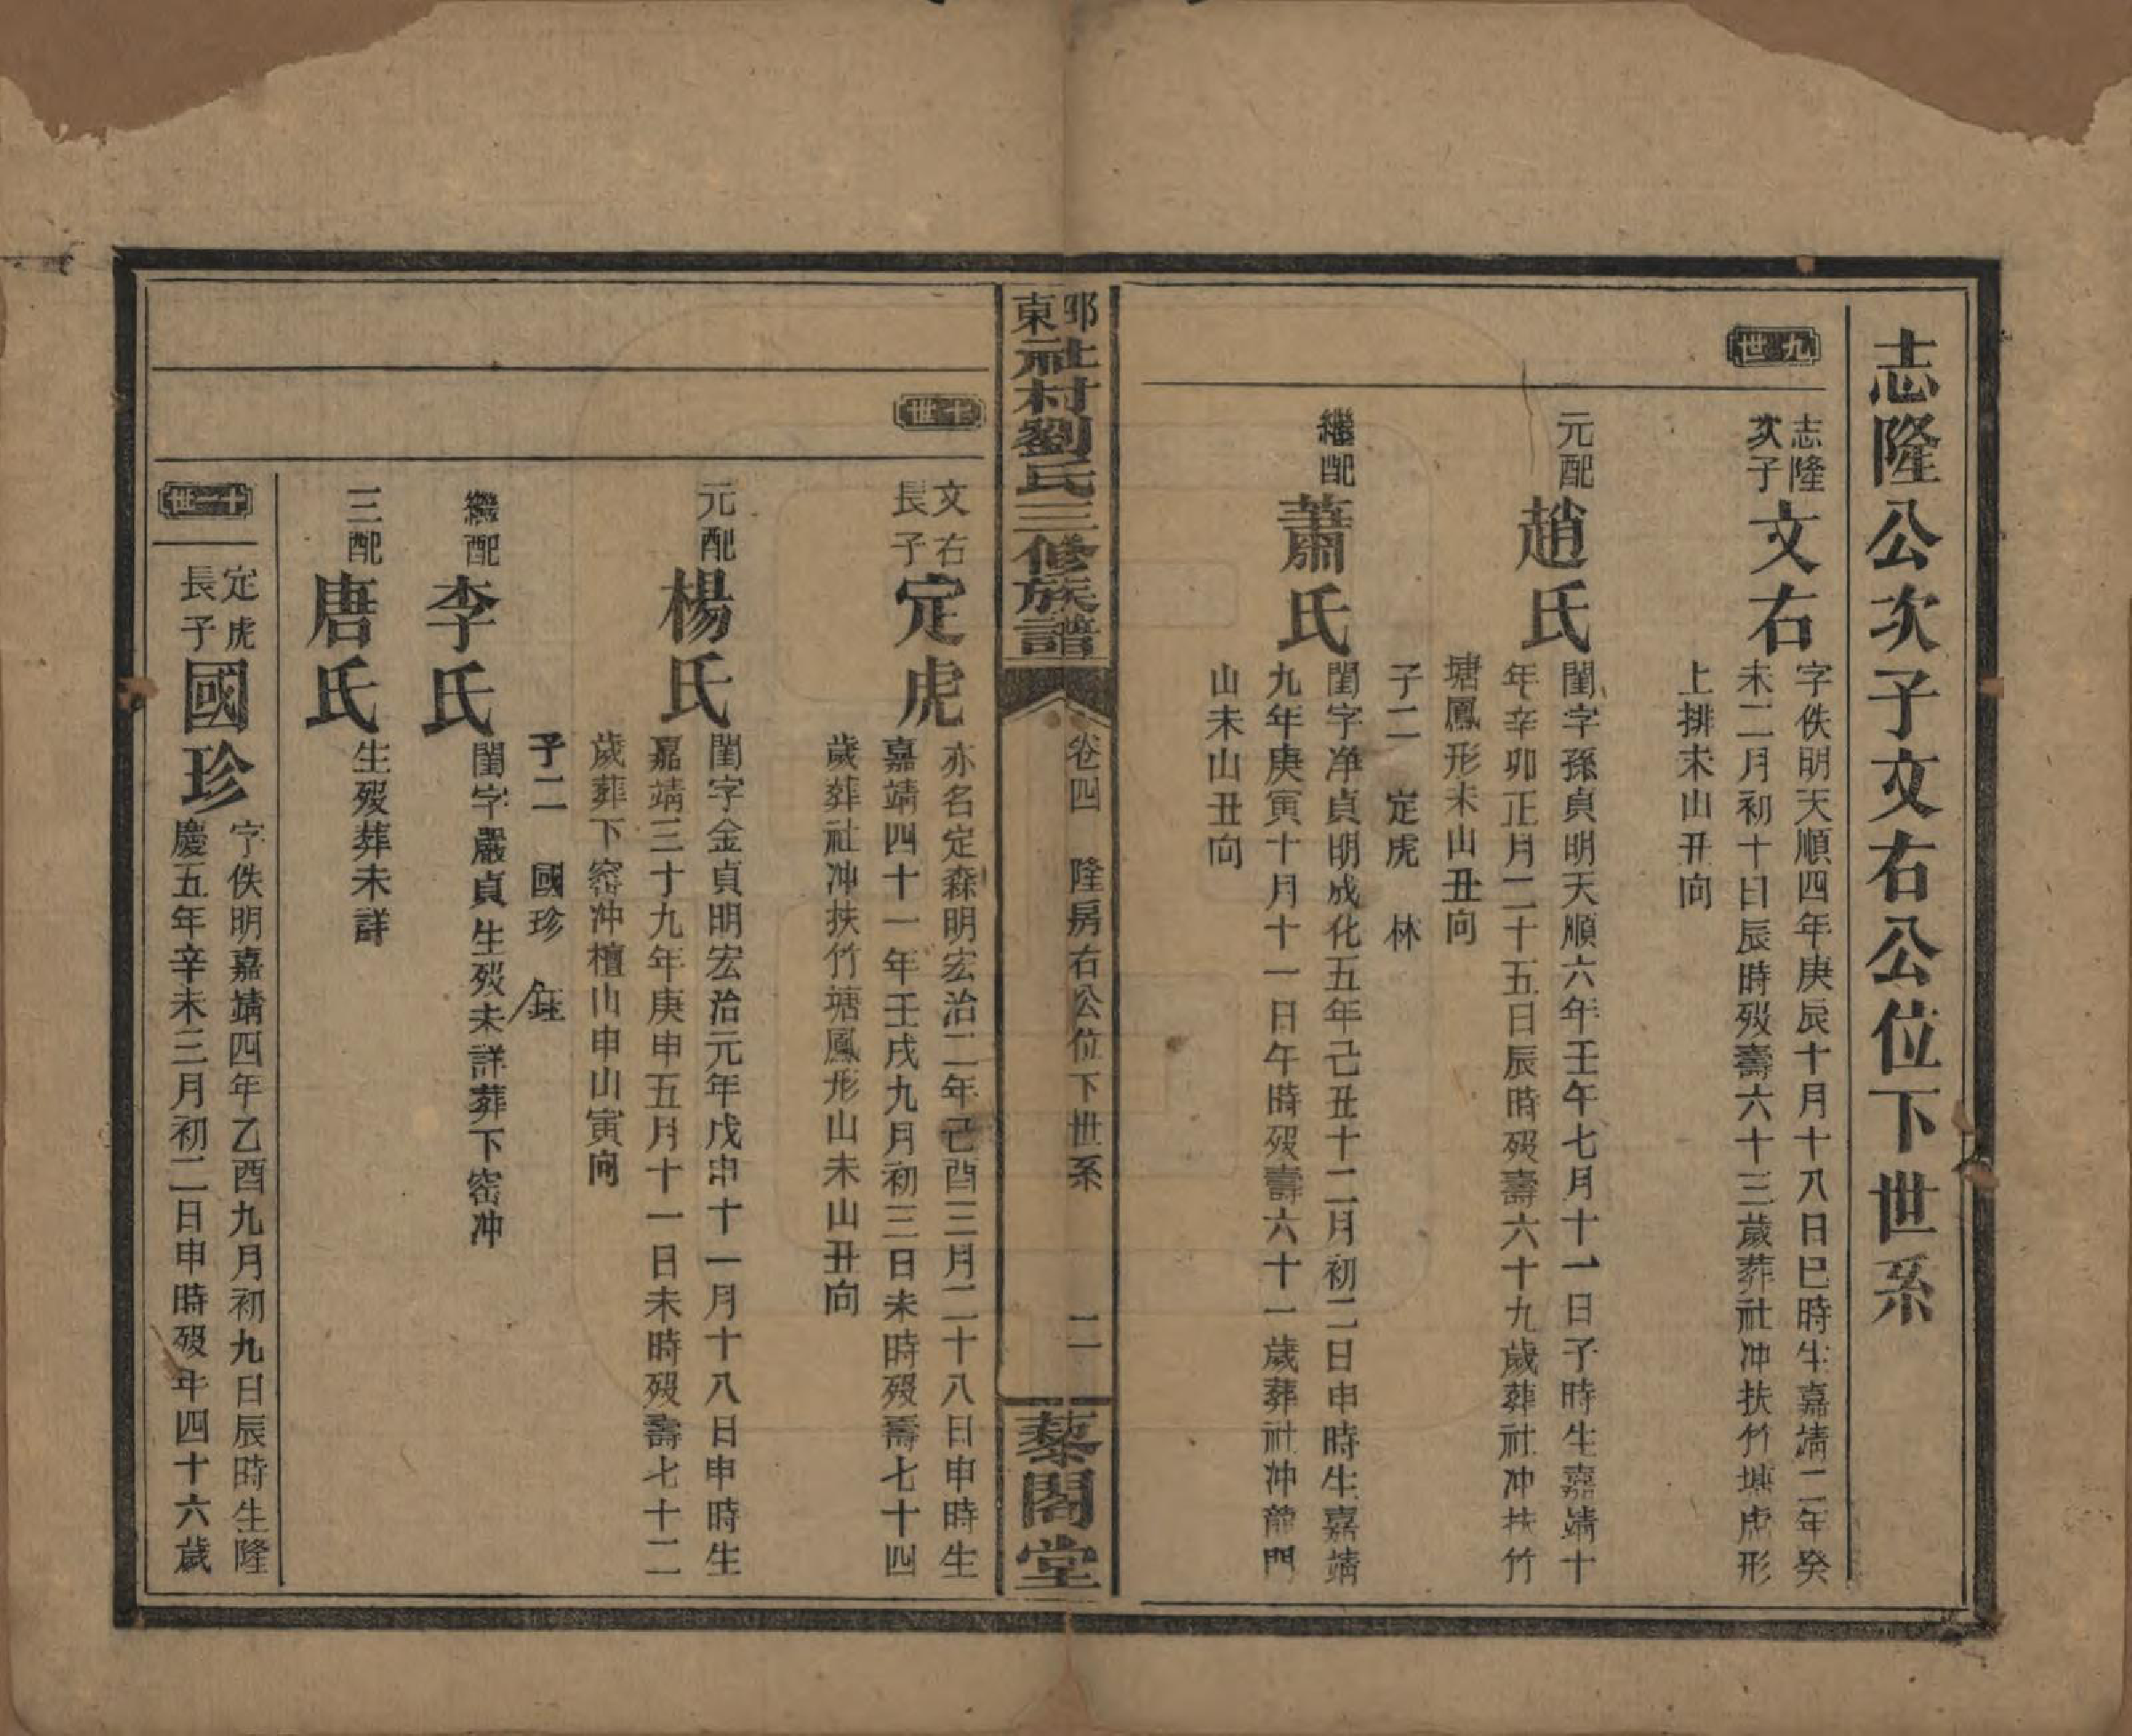 志隆公次子文右公位下世系
九世
志隆次子文右
字佚明天順四年庚辰十月十八日巳時生嘉靖二年癸
未二月初十日辰時歿壽六十三歲葬社冲扶竹塘虎形
上排未山丑向
元配趙氏
閨字孫貞明天順六年壬午七月十一日子時生嘉靖十
年辛卯正月二十五日辰時歿壽六十九歲葬社冲扶竹
塘鳳形未山丑向
子二 定虎 林
繼配蕭氏
閨字淨貞明成化五年己丑十二月初二日申時生嘉靖
九年庚寅十月十一日午時歿壽六十一歲葬社冲龍門
山未山丑向
邵東社村劉氏三修族譜
卷四 隆房右公位下世系 二
藜閣堂
十世
文右長子定虎
亦名定森明宏治二年己酉三月二十八日申時生
嘉靖四十一年壬戌九月初三日未時歿壽七十四
歲葬社冲扶竹塘鳳形山未山丑向
元配楊氏
閨字金貞明宏治元年戊申十一月十八日申時生
嘉靖三十九年庚申五月十一日未時歿壽七十二
歲葬下窑冲檀山申山寅向
子二 國珍 鈺
繼配李氏
閨字嚴貞生歿未詳葬下窑冲
三配唐氏
生歿葬未詳
十一世
定虎長子國珍
字佚明嘉靖四年乙酉九月初九日辰時生隆
慶五年辛未三月初二日申時歿年四十六歲